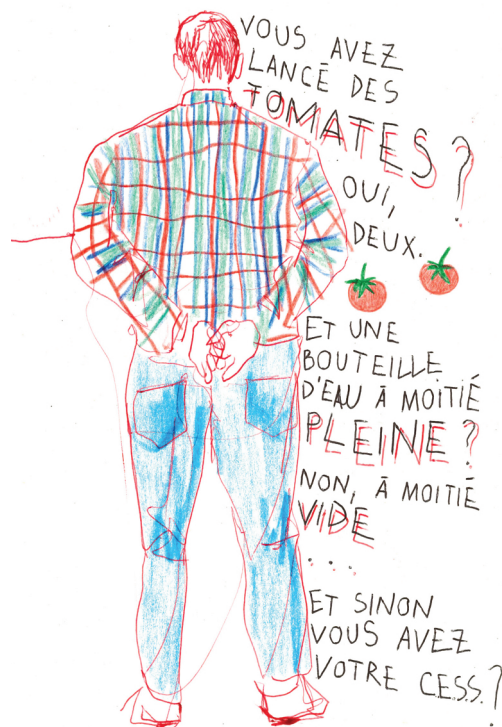 VOUS AVEZ
LANCÉ DES
TOMATES ?
OUI,
DEUX.
ET UNE
BOUTEILLE
D'EAU À MOITIÉ
PLEINE ?
NON, À MOITIÉ
VIDE
....
ET SINON
VOUS AVEZ
VOTRE C.E.S.S. ?